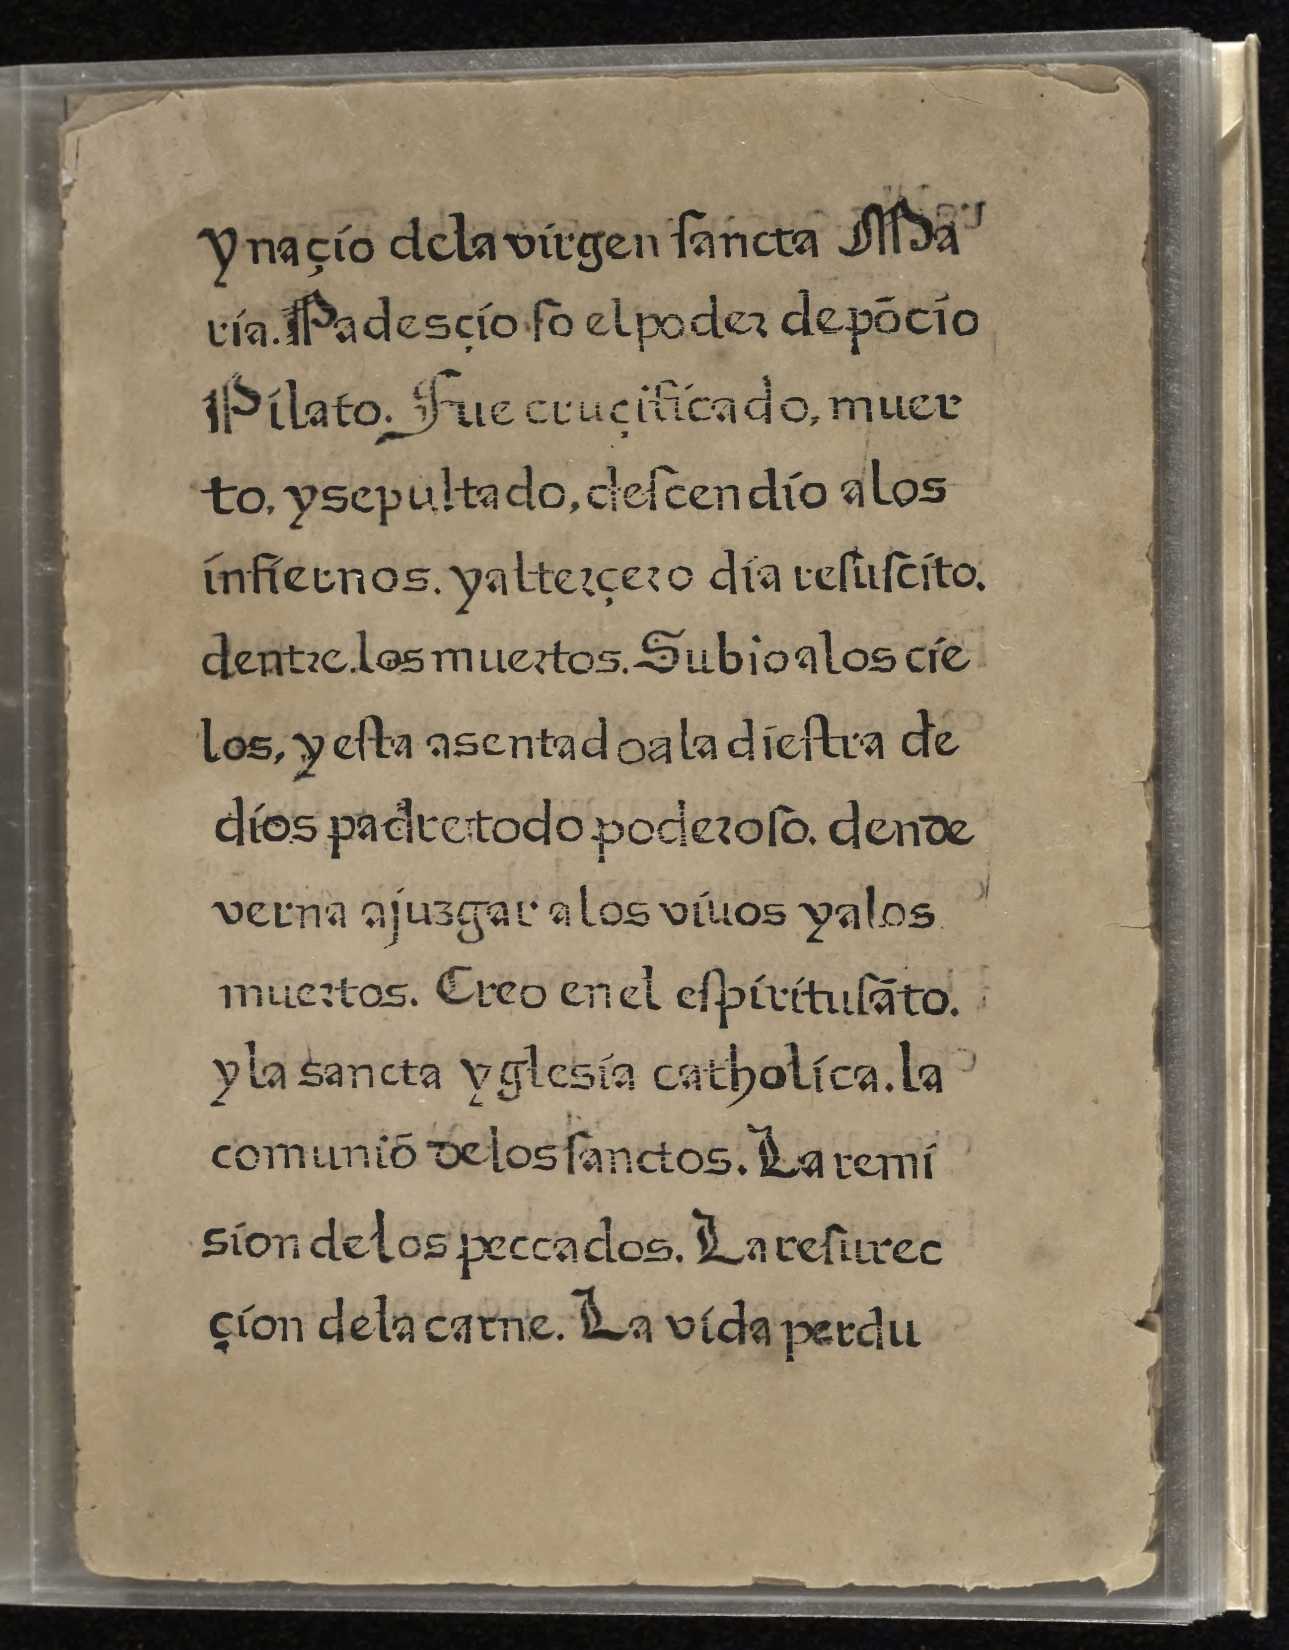 y naçio dela virgen ſancta Ma
ria. Padesçio ſo el poder de põcio
Pilato. Fue cruçificado, muer
to, y sepultado, deſcendio a los
infiernos. y al terçero dia reſuſcito.
dentre.los muertos. Subio a los cie
los, y eſta asentado a la dieſtra de
dios padre todo poderoſo. dende
verna a juzgar a los viuos y a los
muertos. Creo en el eſpiritu ſãto.
y la sancta yglesia catholica. la
comuniõ de los ſanctos. La remi
sion de los peccados. La reſurrec
çion dela carne. La vida perdu